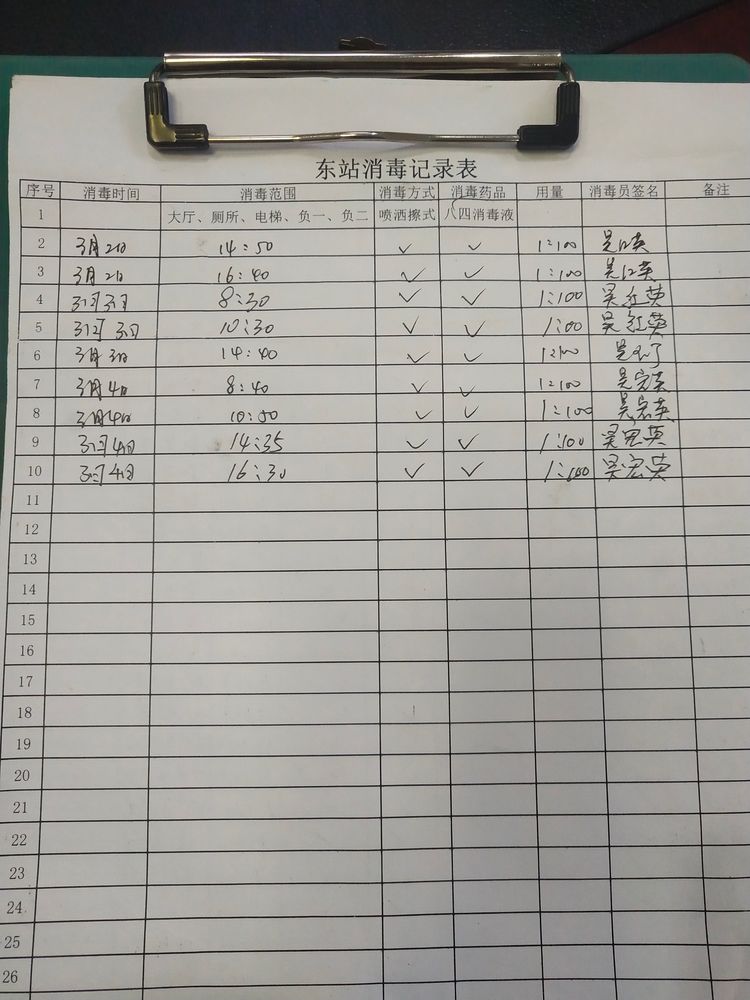 东站消毒记录表
序号 消毒时间 消毒范围 消毒方式 消毒药品 用量 消毒员签名 备注
1 大厅、厕所、电梯、负一、负二 喷洒擦式 八四消毒液
2 3月2日 14:50 ✓ ✓ 1:100
3 3月2日 16:40 ✓ ✓ 1:100
4 3月3日 8:30 ✓ ✓ 1:100 吴红英
5 3月3日 10:30 ✓ ✓ 吴红英
6 3月3日 14:40 ✓ ✓ 1:100
7 3月4日 8:40 ✓ ✓ 1:100 吴宏英
8 3月4日 10:50 ✓ ✓ 1:100 吴宏英
9 3月4日 14:35 ✓ ✓ 1:100 吴宏英
10 3月4日 16:30 ✓ ✓ 1:100 吴宏英
11
12
13
14
15
16
17
18
19
20
21
22
23
24
25
26